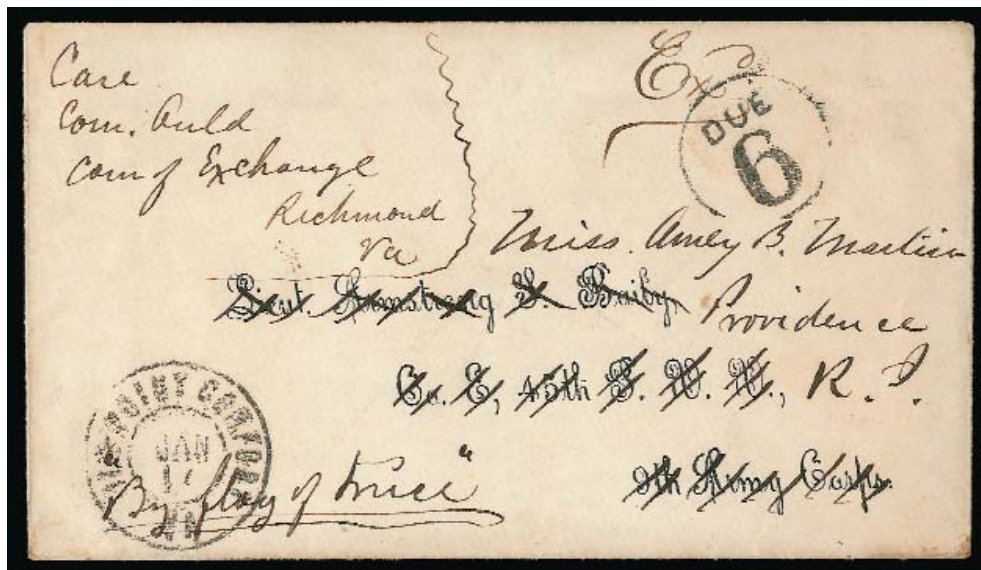 Care
Com. Ould
Com of Exchange
Richmond
Va
Ex
DUE
6
Miss. Amey B. Martin
Providence
R. I.
Lieut. Armstrong
Co. E, 45th P. V. V.,
9th Army Corps.
POINT COMFORT
JAN
17
By flag of Truce"